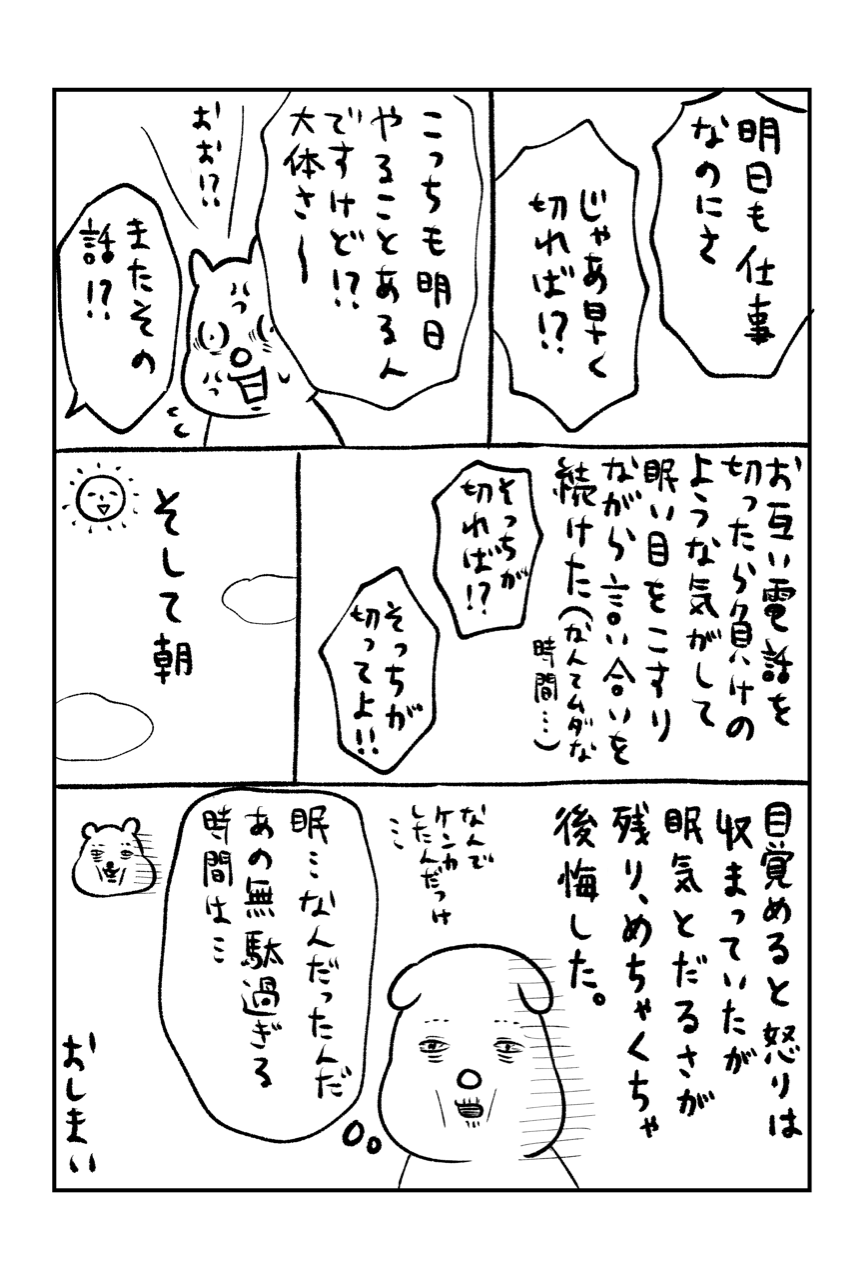 明日も仕事
なのにさ
じゃあ早く
切れば!?
こっちも明日
やることあるん
ですけど!?
大体さ〜
おお!?
またその
話!?
お互い電話を
切ったら負けの
ような気がして
眠い目をこすり
ながら言い合いを
続けた(なんてムダな
時間…)
そっちが
切れば!?
そっちが
切ってよ!!
そして朝
目覚めると怒りは
収まっていたが
眠気とだるさが
残り、めちゃくちゃ
後悔した。
なんで
ケンカ
したんだっけ
…
眠…なんだったんだ
あの無駄過ぎる
時間は…
おしまい